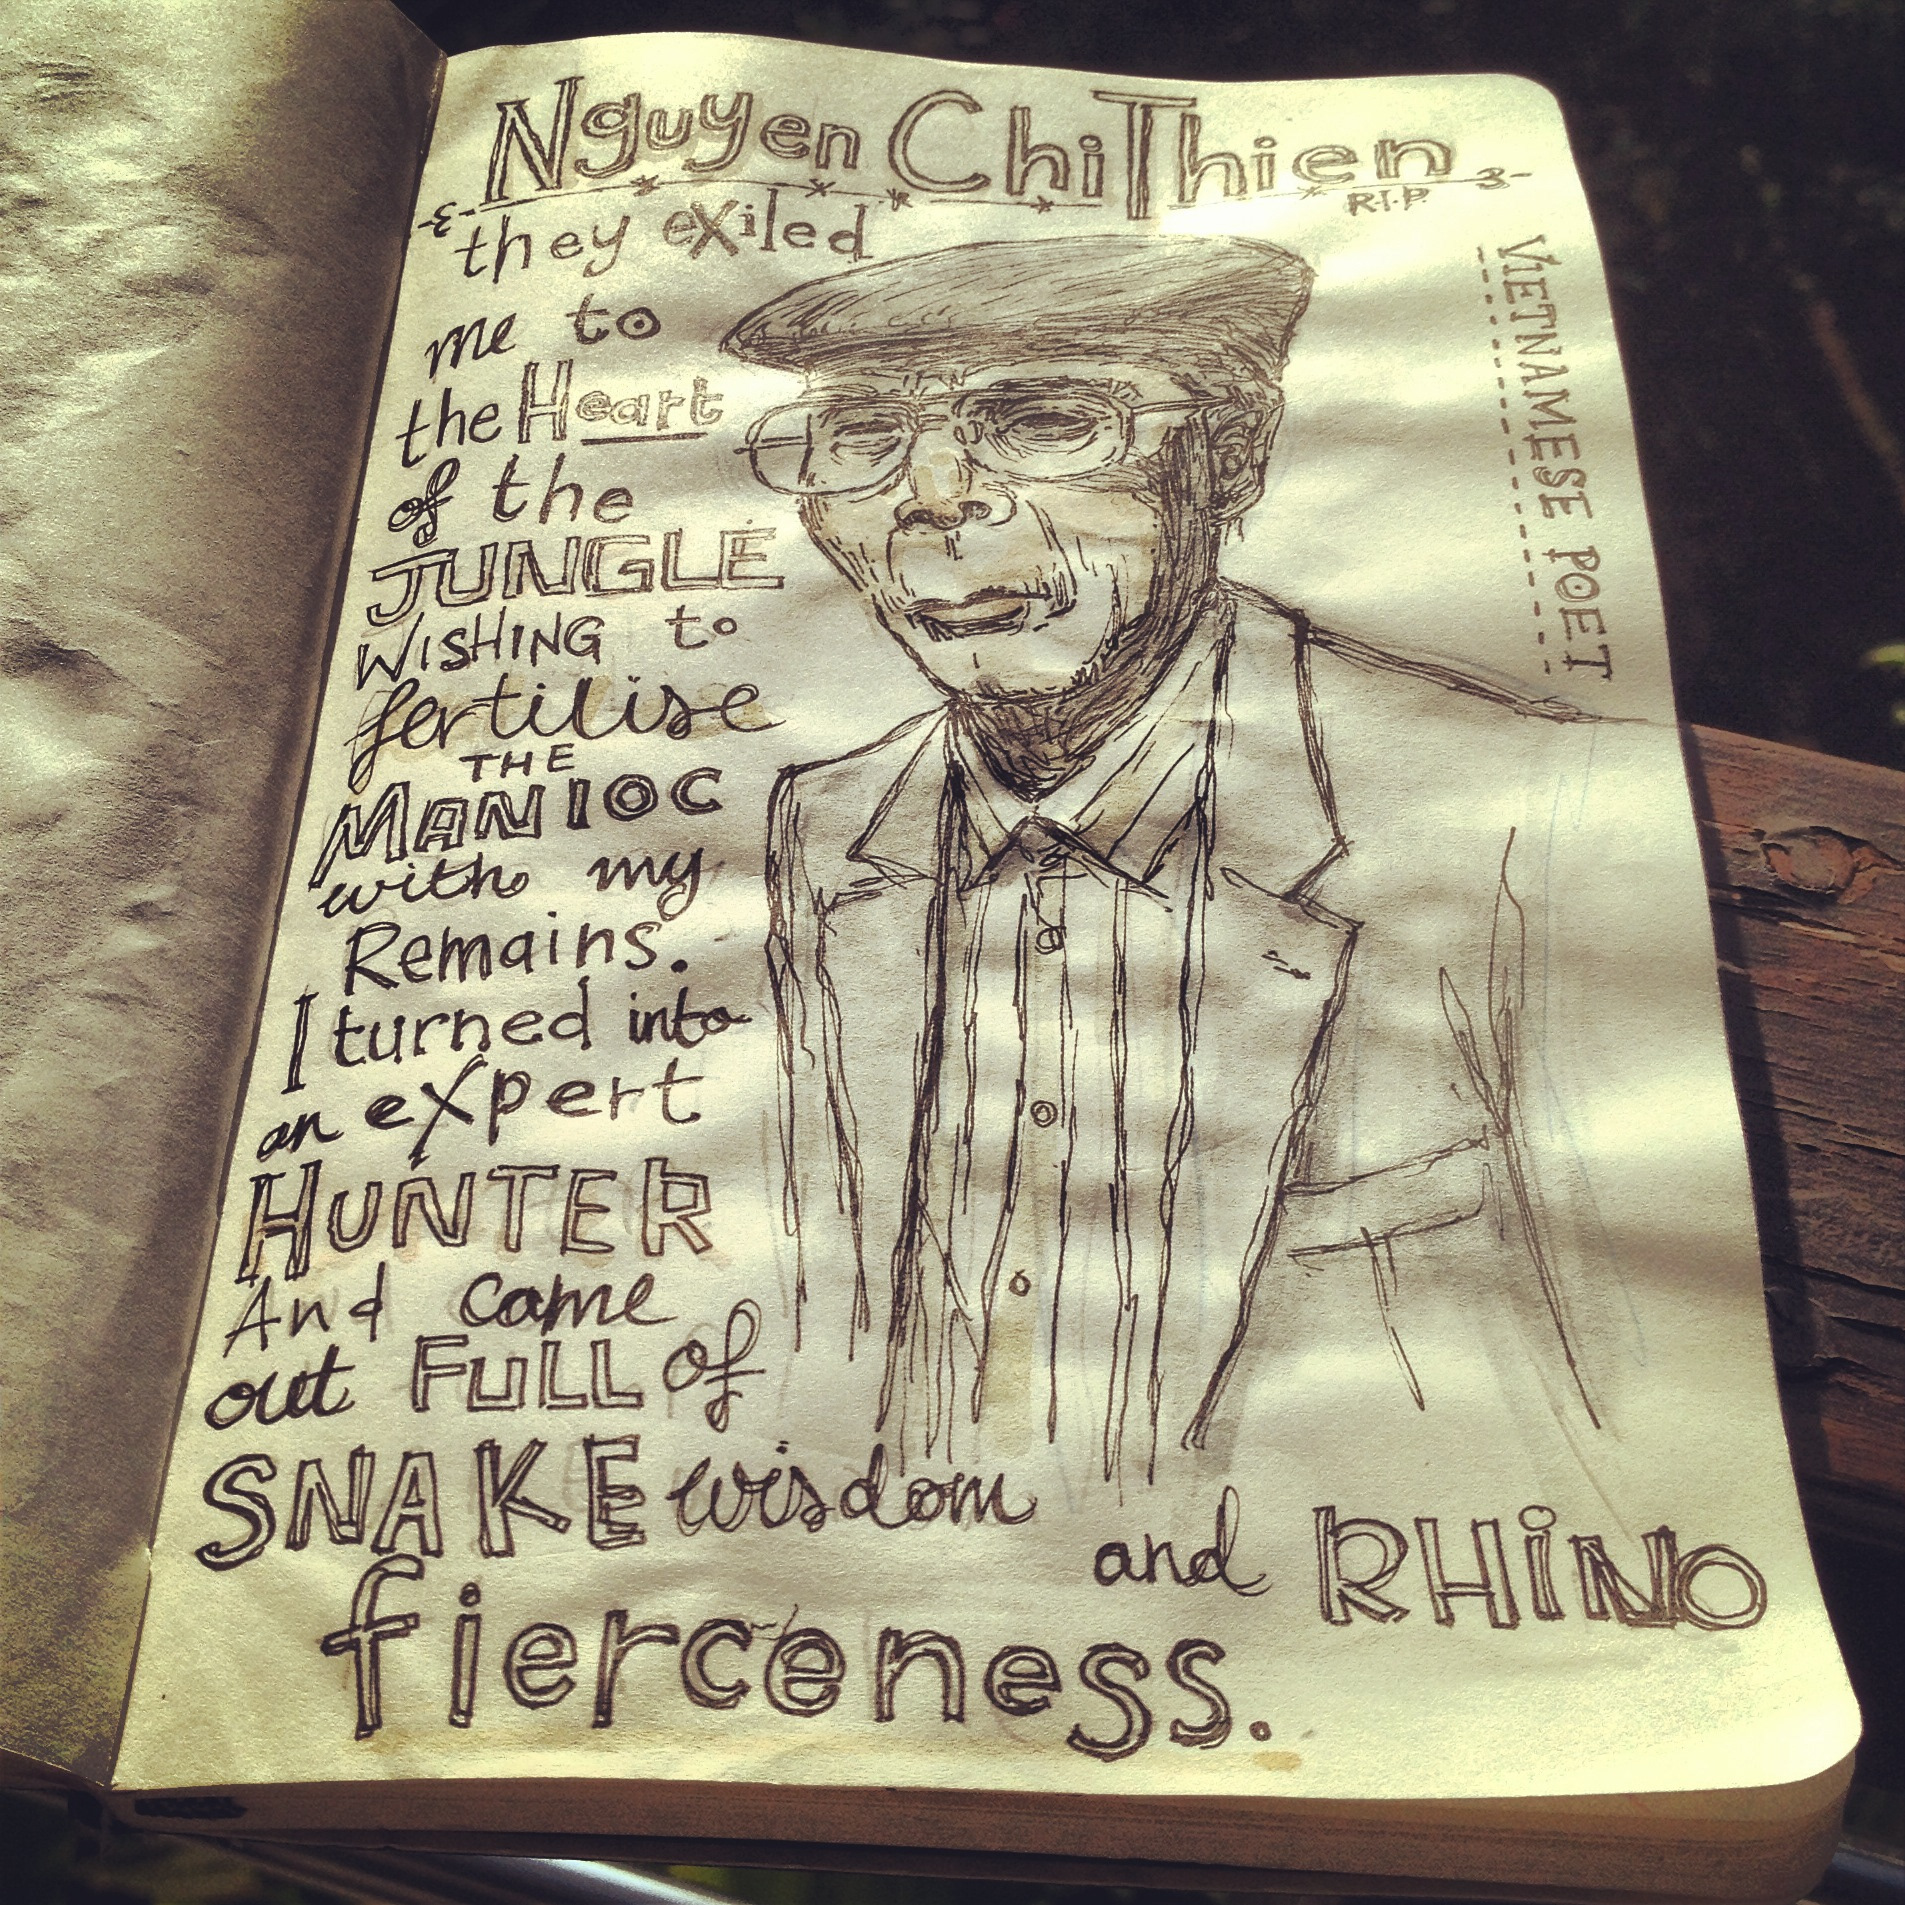 Nguyen Chi Thien
R.I.P
VIETNAMESE POET
they exiled
me to
the Heart
of the
JUNGLE
WISHING to
fertilise
THE
MANIOC
with my
Remains.
I turned into
an expert
HUNTER
And came
out FULL of
SNAKE wisdom
and RHINO
fierceness.